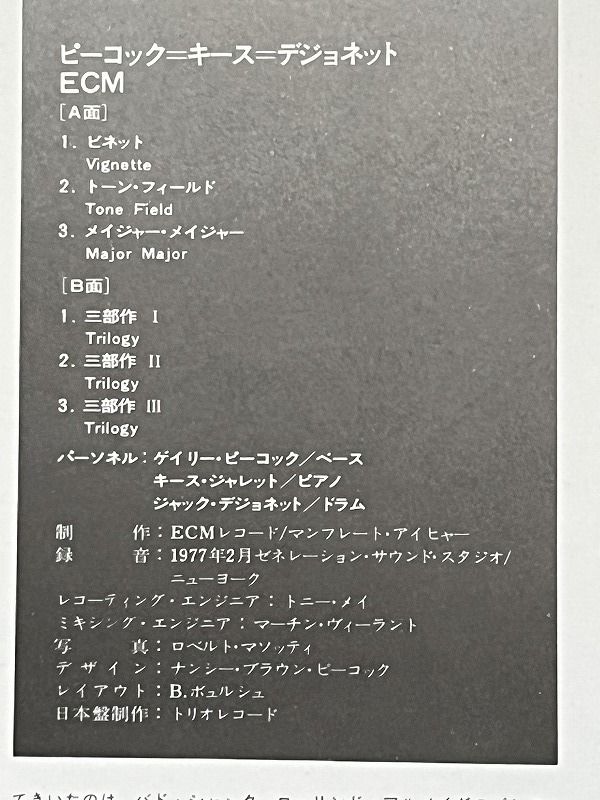 ピーコック=キース=デジョネット
ECM
[A面]
1. ビネット
Vignette
2. トーン・フィールド
Tone Field
3. メイジャー・メイジャー
Major Major
[B面]
1. 三部作 I
Trilogy
2. 三部作 II
Trilogy
3. 三部作 III
Trilogy
パーソネル：ゲイリー・ピーコック／ベース
キース・ジャレット／ピアノ
ジャック・デジョネット／ドラム
制作：ECMレコード/マンフレート・アイヒャー
録音：1977年2月ゼネレーション・サウンド・スタジオ/
ニューヨーク
レコーディング・エンジニア：トニー・メイ
ミキシング・エンジニア：マーチン・ヴィーラント
写真：ロベルト・マソッティ
デザイン：ナンシー・ブラウン・ピーコック
レイアウト：B.ボュルシュ
日本盤制作：トリオレコード